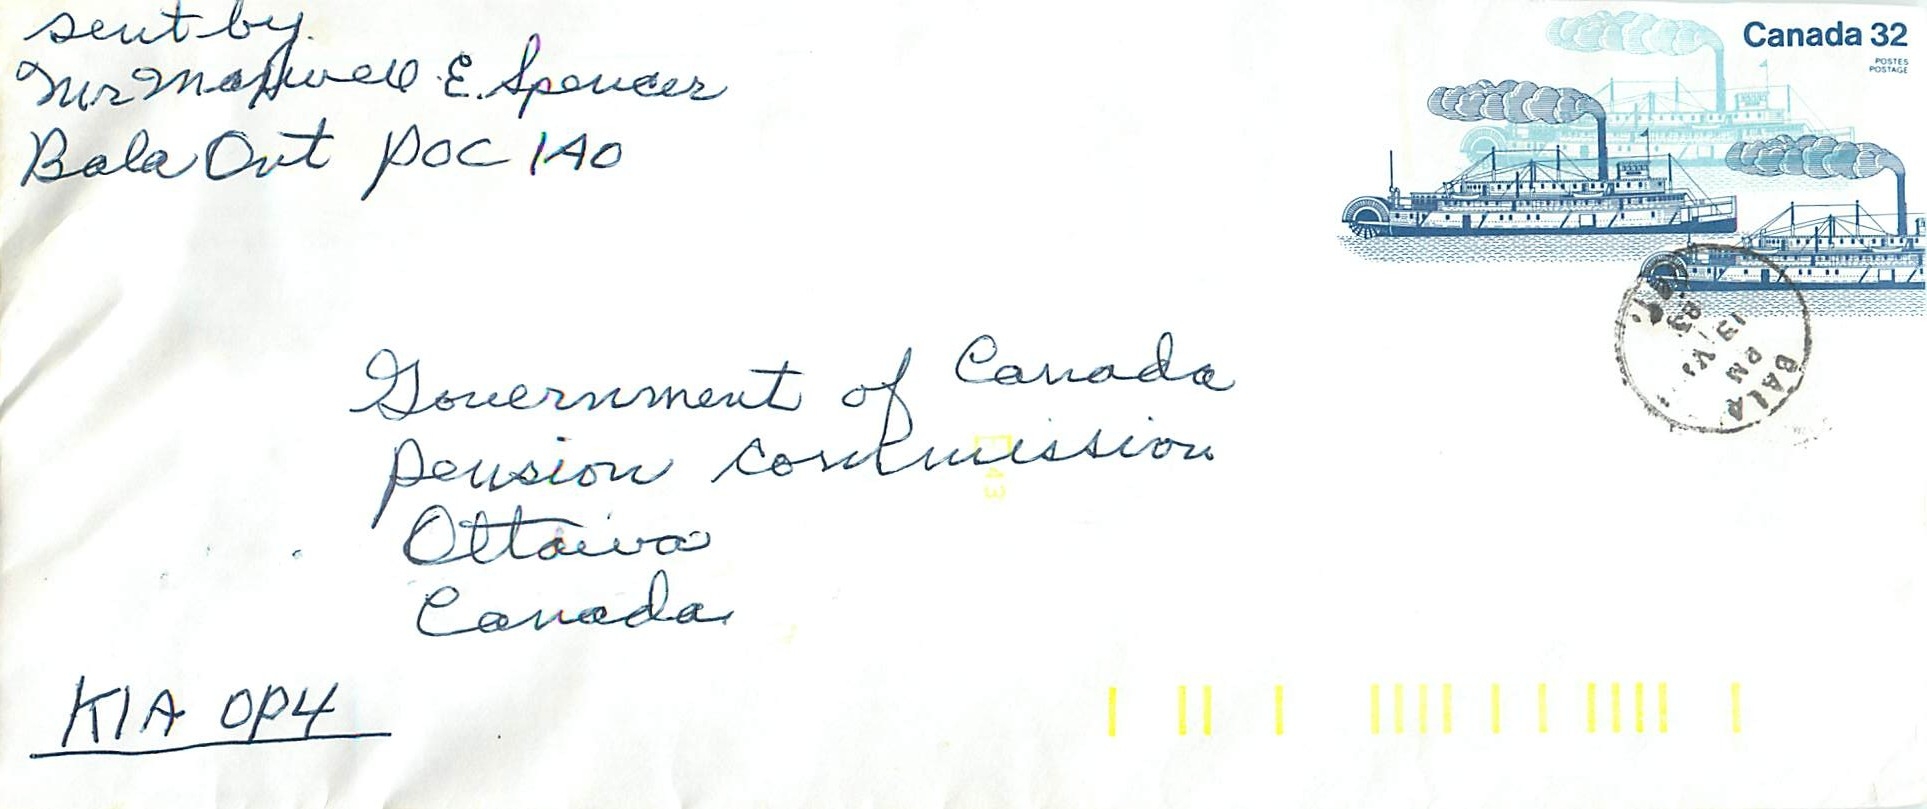 sent by.
Mr Maxwell E. Spencer
Bala Ont POC 1A0
Canada 32
POSTES
POSTAGE
BALA
PM
13 VI
83
ONT.
Government of Canada
Pension Commission
Ottawa
Canada
43
K1A 0P4